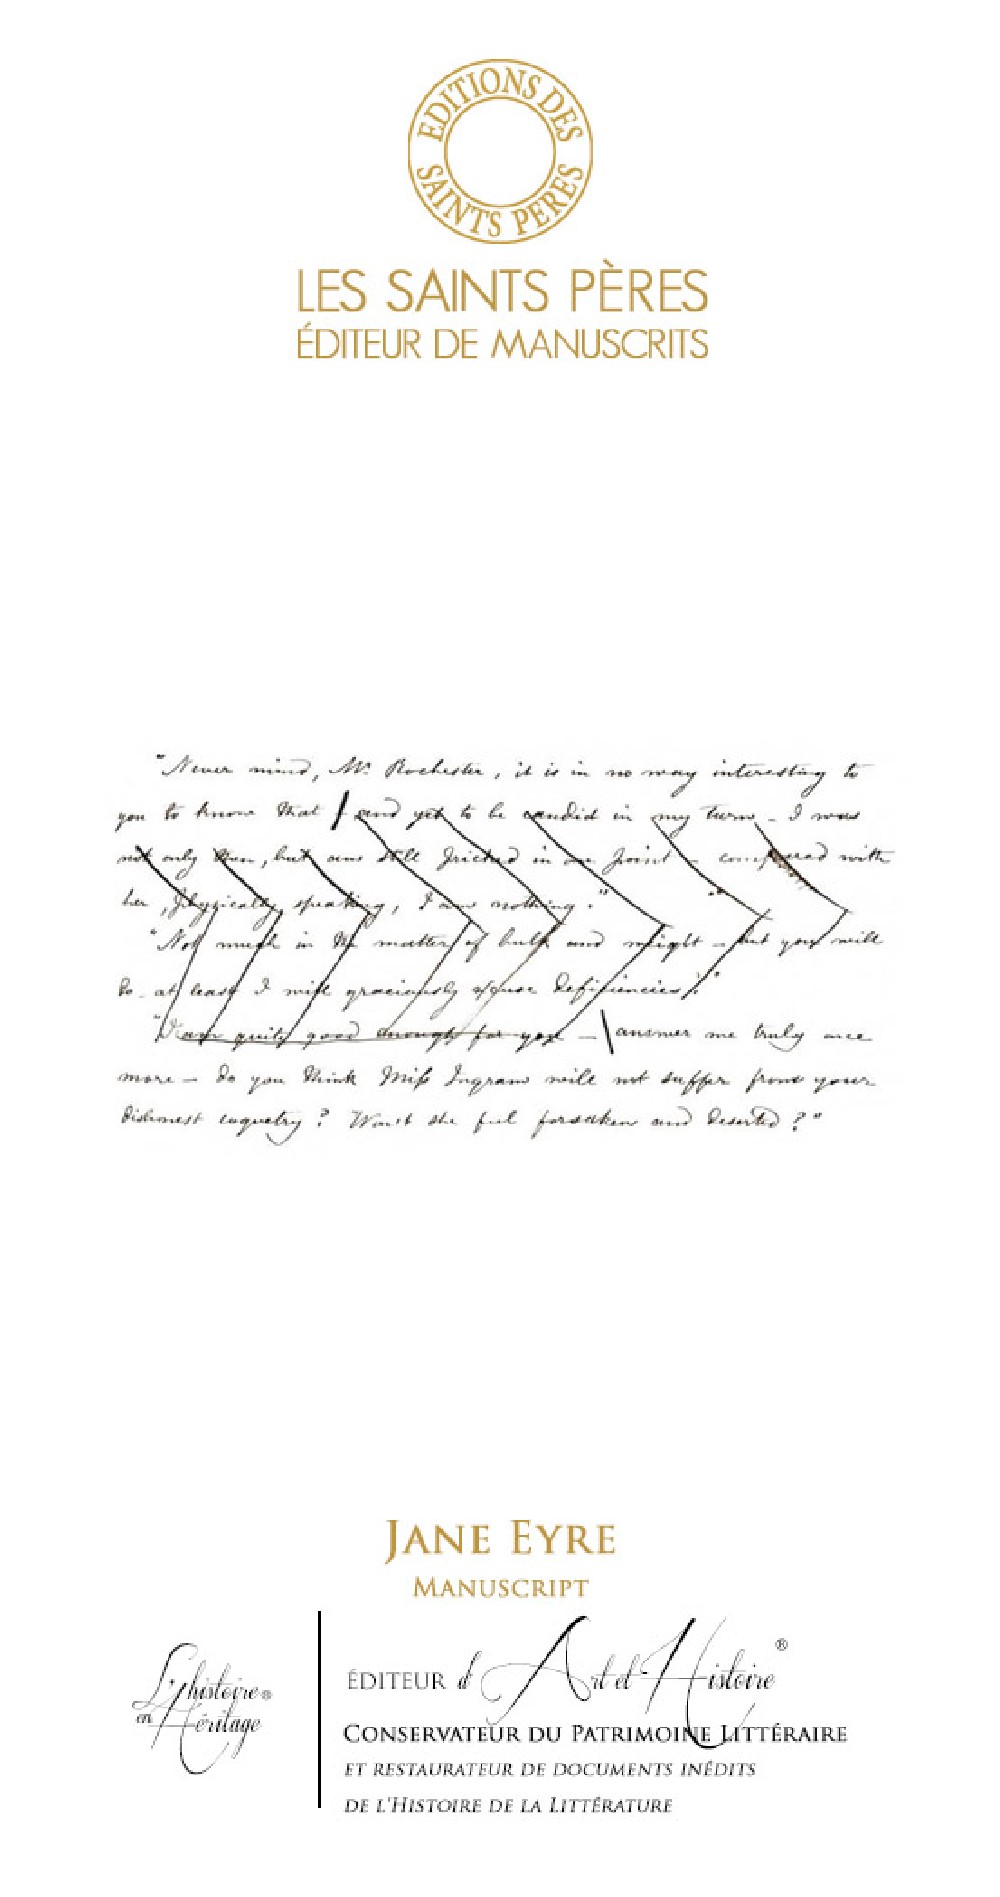 EDITIONS DES
SAINTS PERES
LES SAINTS PÈRES
ÉDITEUR DE MANUSCRITS
"Never mind, Mr Rochester, it is in no way interesting to
you to know that and yet to be candid in my turn - I was
not only then, but am still pricked in one point - compared with
her, physically speaking, I am nothing."
"Not much in the matter of bulk and might - but you will
do - at least I will graciously excuse deficiencies."
"I am quite good enough for you - answer me truly once
more - do you think Miss Ingram will not suffer from your
dishonest coquetry? Won't she feel forsaken and deserted?"
JANE EYRE
MANUSCRIPT
L'histoire®
en Héritage
ÉDITEUR d'Art et Histoire®
CONSERVATEUR DU PATRIMOINE LITTÉRAIRE
ET RESTAURATEUR DE DOCUMENTS INÉDITS
DE L'HISTOIRE DE LA LITTÉRATURE